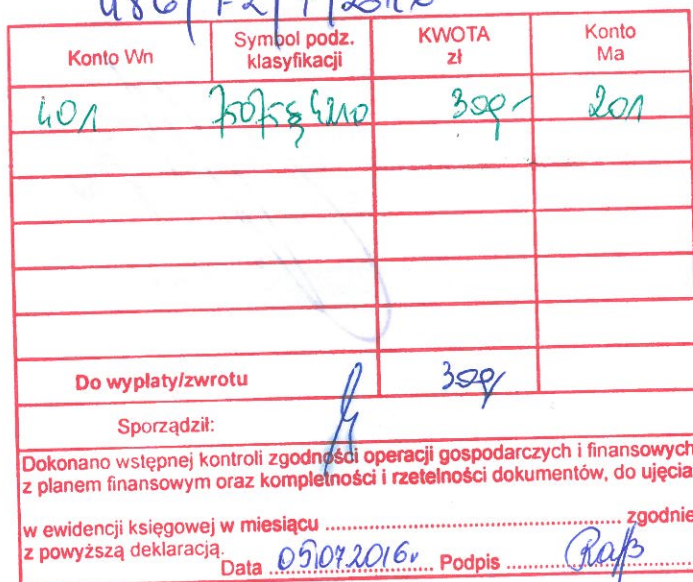 Konto Wn Symbol podz. klasyfikacji KWOTA zł Konto Ma
401 75075 § 4210 300,- 201
Do wypłaty/zwrotu 300,
Sporządził:
Dokonano wstępnej kontroli zgodności operacji gospodarczych i finansowych
z planem finansowym oraz kompletności i rzetelności dokumentów, do ujęcia
w ewidencji księgowej w miesiącu ........ zgodnie
z powyższą deklaracją.
Data 05.07.2016r Podpis ........